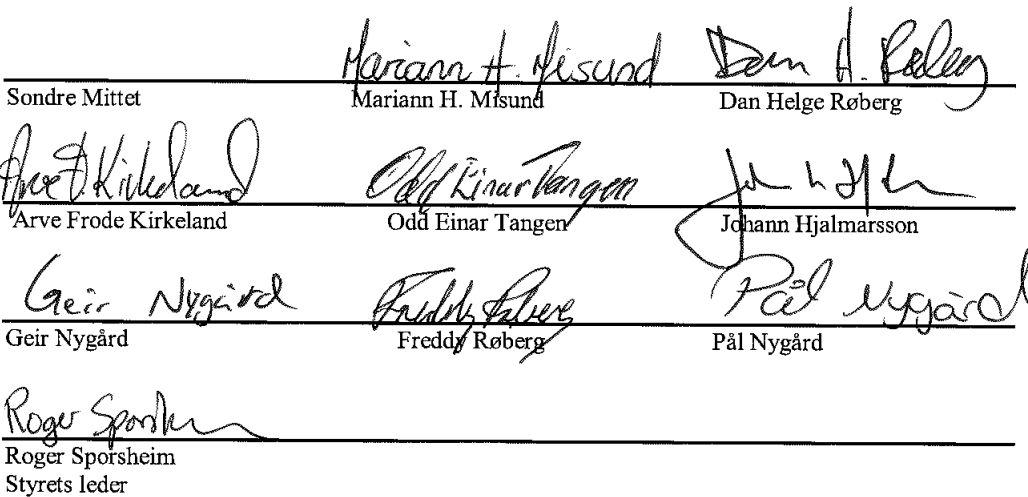 Mariann H. Misund Dan H. Røberg
Sondre Mittet Mariann H. Misund Dan Helge Røberg
Arve F Kirkeland Odd Einar Tangen
Arve Frode Kirkeland Odd Einar Tangen Johann Hjalmarsson
Geir Nygård Freddy Røberg Pål Nygård
Geir Nygård Freddy Røberg Pål Nygård
Roger Sporsheim
Roger Sporsheim
Styrets leder